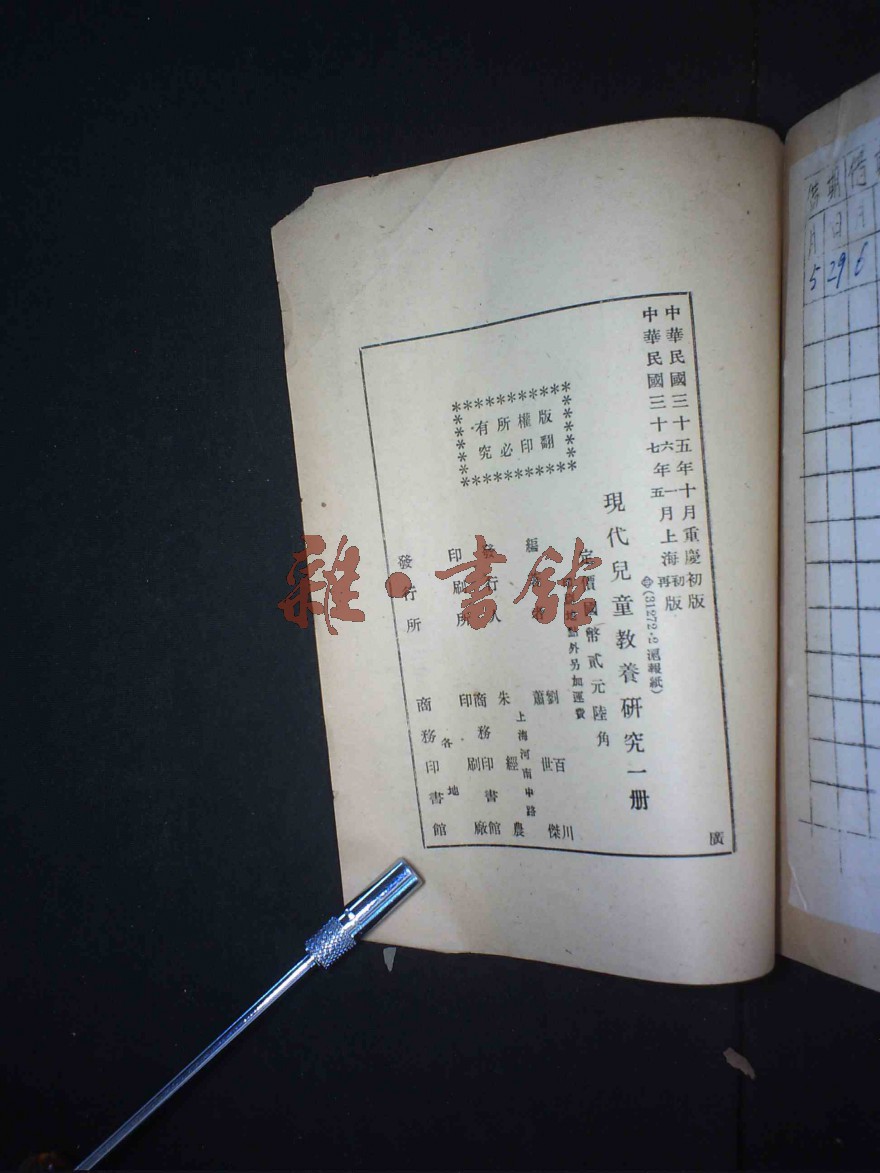 中華民國三十五年十月重慶初版
中華民國三十六年一月上海初版
七 五 再
(31272·2 滬報紙)
現代兒童教養研究一册
定價國幣貳元陸角
外另加運費
版權所有
翻印必究
編
劉百川
蕭世傑
發行人
朱經農
上海河南中路
印刷所
商務印書館
印刷廠
發行所
各地
商務印書館
廣
雜·書館
借期
月日
5 29
月
6